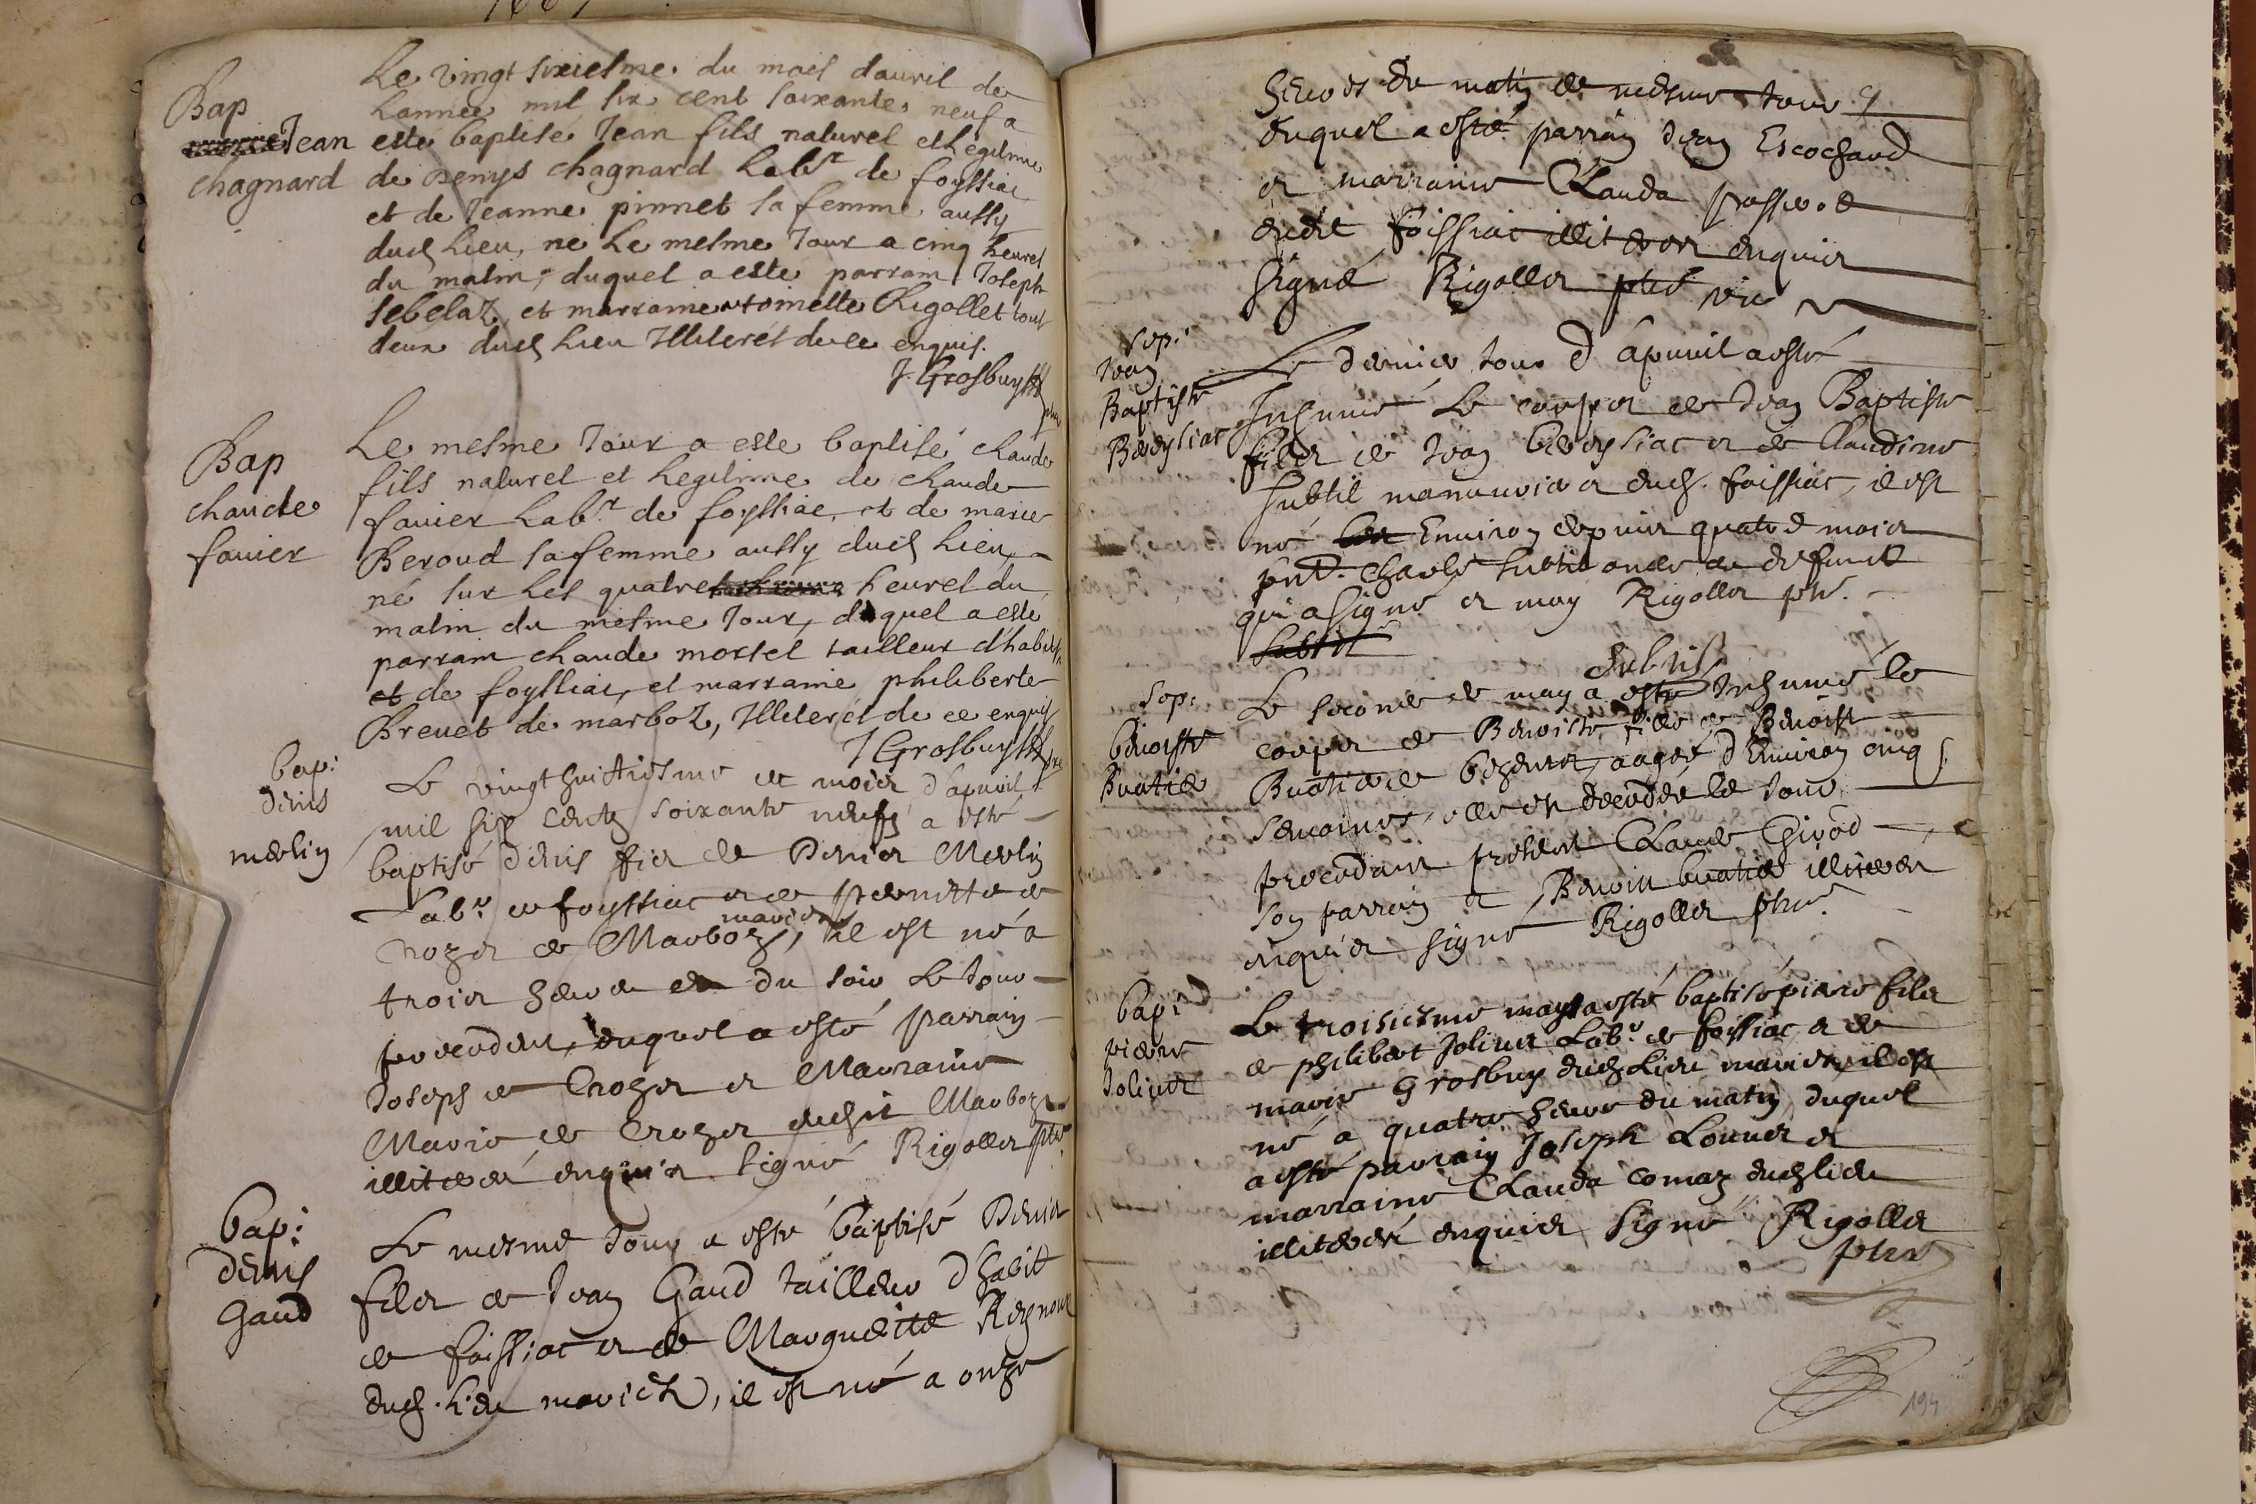 Bap
Jean
chagnard
Le vingt sixiesme du mois dauril de
Lannee mil six cent soixante neuf a
este baptisé Jean fils naturel et Legitime
de Denys chagnard Labr de foyssiac
et de Jeanne pinnet sa femme aussy
dud Lieu, né Le mesme Jour a cinq heures
du matin, duquel a este parrain Joseph
sebelaz et marraine Rigollet tous
deux dud Lieu Illiterés de ce enquis.
J. Grosbuys
Bap
claude
favier
Le mesme Jour a este baptisé claude
fils naturel et Legitime de claude
favier Labr de foyssiac, et de marie
Beroud sa femme aussy dud Lieu,
né sur Les quatre heures du
matin du mesme Jour, duquel a este
parrain claude mortel tailleur d'habits
et de foyssiac, et marraine philiberte
Brevet de marboz, Illiterés de ce enquis
J Grosbuys
bap:
denis
merlin
Le vingt huitiesme de mois d'apuril
mil six cents soixante neufz a esté
baptisé denis fis de Denis Merlin
Labr de foyssiac et de pernette de
mariés
crozes de Marboz, il est né a
trois heures du soir Le Jour
precedent, duquel a esté parrain
Joseph de Crozes et Marraine
Marie de Crozes dudit Marboz
illiterés enquis signé Rigollet ptre
bap:
denis
Gaud
Le mesme Jour a esté baptisé Denis
fils de Jean Gaud tailleur d'habit
de foissiac et de Marguerite
dud. Lieu mariés, il est né a onze
heures du matin de mesme Jour
duquel a esté parrain Jean Escochard
et marraine Clauda
dudit foissiac illiteres enquis
signé Rigollet ptre vic
sop:
Jean
Baptiste
Le dernier Jour d'apuril a esté
Inhumé Le corps de Jean Baptiste
fils de Jean et de Claudine
subtil manouvrier dud. foissiac, il est
né Environ depuis quatre mois
pnt. Charle subtil oncle de defunct
qui a signé et moy Rigollet ptre.
subtil
sop:
benoiste
Buatier
Le second de may a esté Inhumé le
corps de Benoiste fille de Benoist
Buatier de bezenet, aagée d'Environ cinq
semaines, elle est decedée le Jour
precedant present Claude Girod
son parrain et Benoist buatier illiteres
enquis signé Rigollet ptre
bap:
pierre
Joliuet
Le troisiesme may a esté baptisé pierre fils
de philibert Joliuet Labr de foissiac et de
marie Grosbuy dud Lieu mariés, il est
né a quatre heures du matin duquel
a esté parrain Joseph Louuet et
marraine Clauda comaz dud lieu
illiterés enquis signé Rigollet
ptre
194